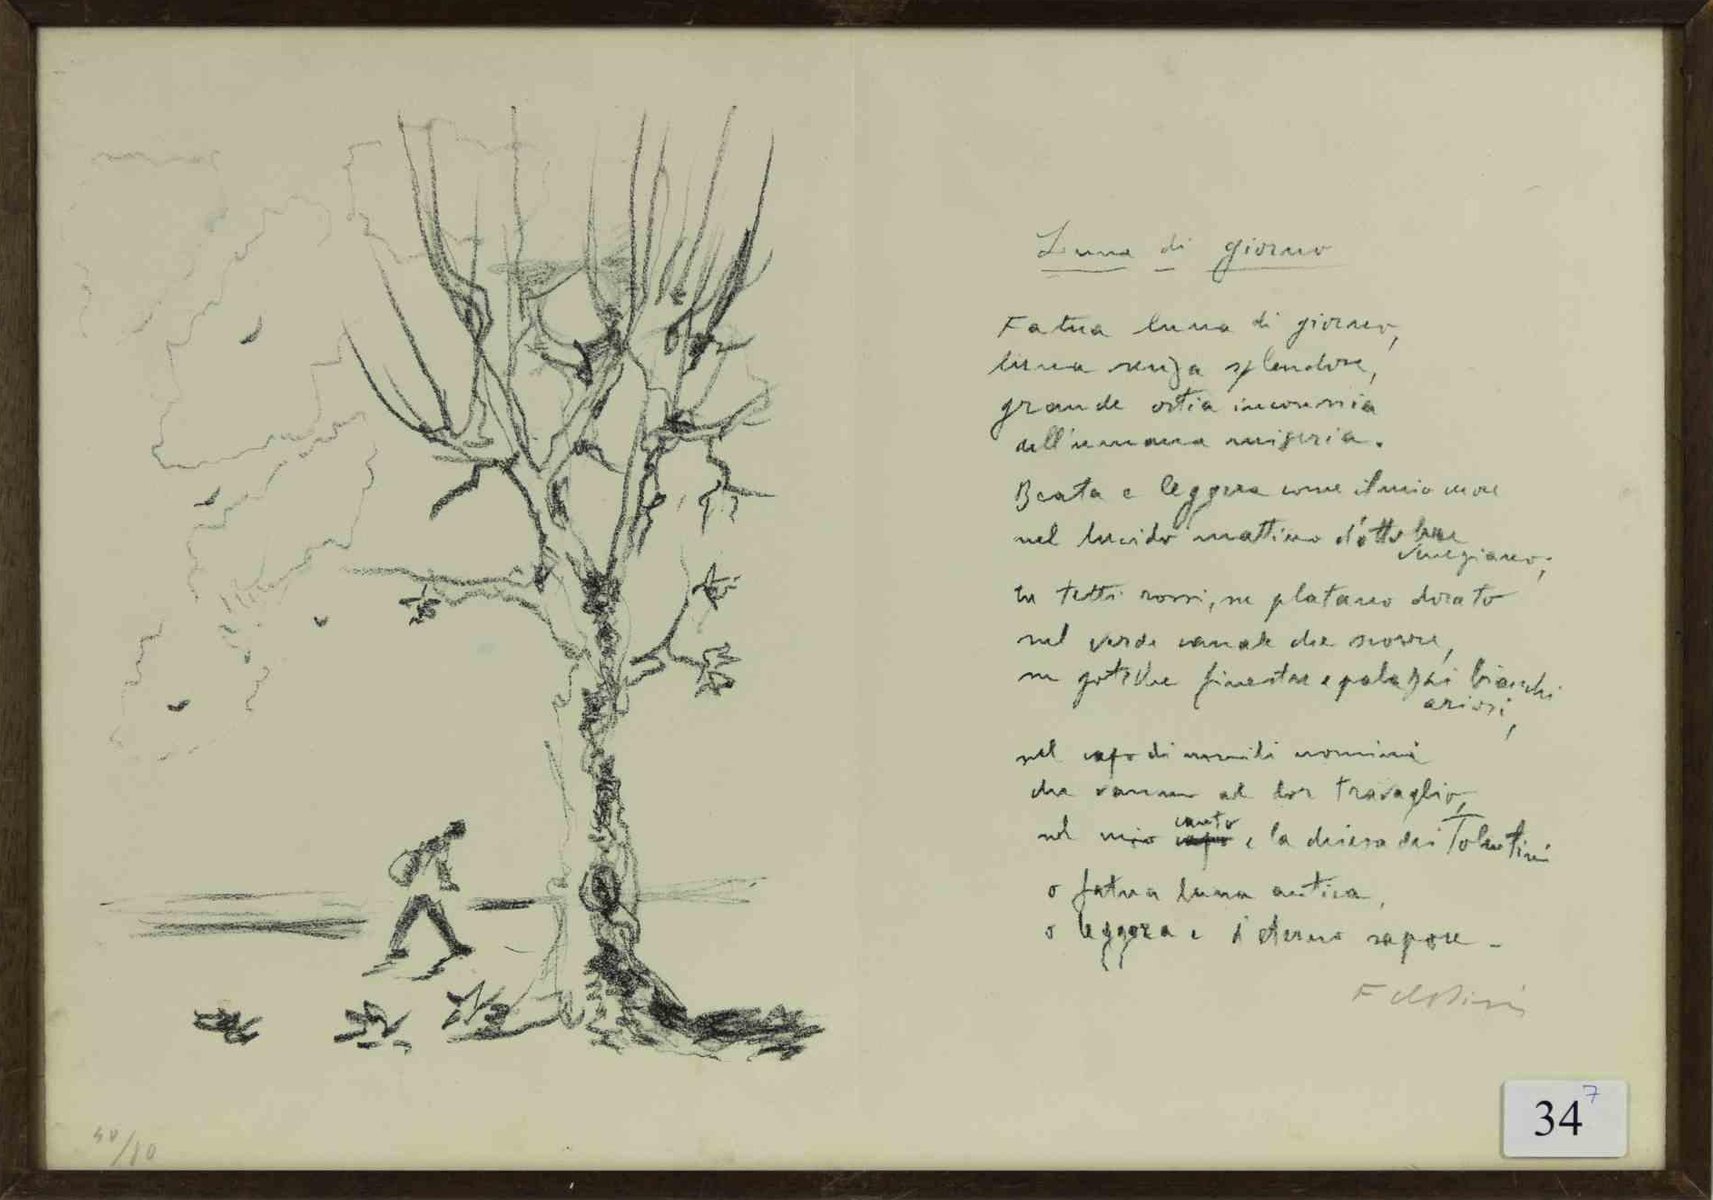 Luna di giorno
Fatua luna di giorno,
luna senza splendore,
grande ostia inconscia
dell'umana miseria.
Beata e leggera come il mio cuore
nel lucido mattino d'ottobre
veneziano;
su tetti rossi, su platano dorato
nel verde canale che scorre,
su gotiche finestre e palazzi bianchi
ariosi,
nel capo di umili uomini
che vanno al lor travaglio,
nel mio canto e la chiesa dei Tolentini
o fatua luna antica,
o leggera e d'eterno sapore -
F de Pisis
50/80
34 7